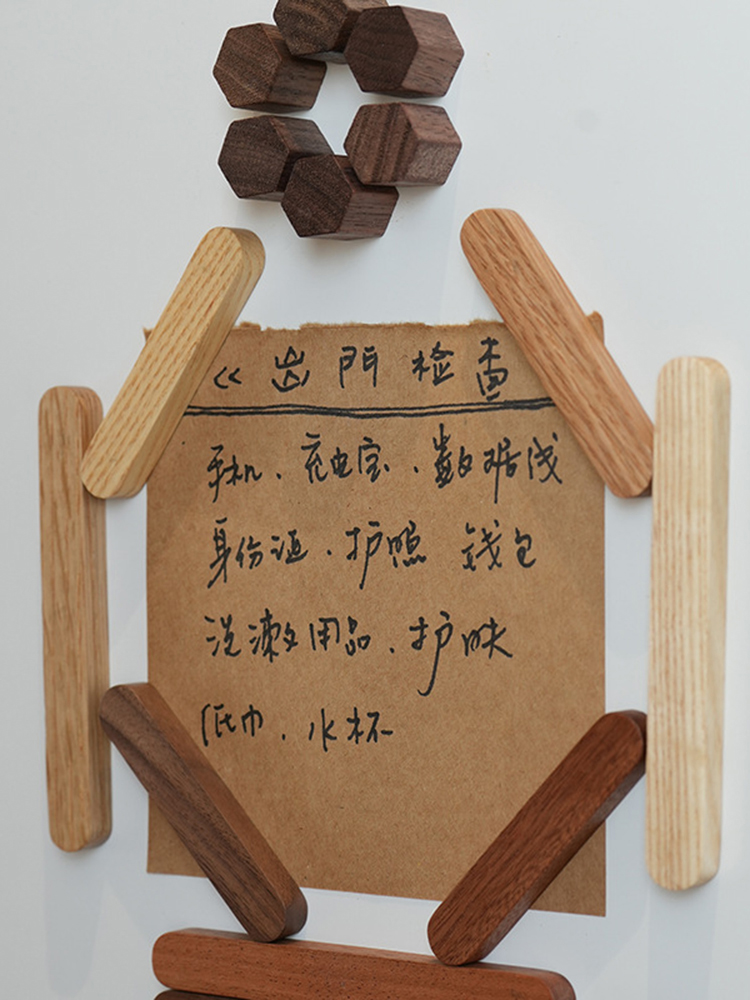 《出門检查
手机、充电宝、数据线
身份证、护照 钱包
洗漱用品、护肤
纸巾、水杯